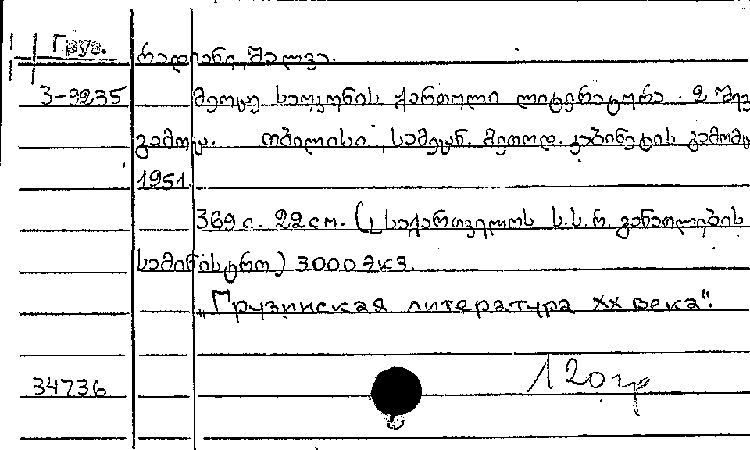 Груз.
რადიანი, შალვა.
3-9235
მეოცე საუკუნის ქართული ლიტერატურა. 2 შევ
გამოც. თბილისი, სამეცნ. მეთოდ. კაბინეტის გამომც
1951.
369 с. 22 см. (საქართველოს ს.ს.რ. განათლების
სამინისტრო) 3000 экз.
„Грузинская литература XX века".
34736
120 гр